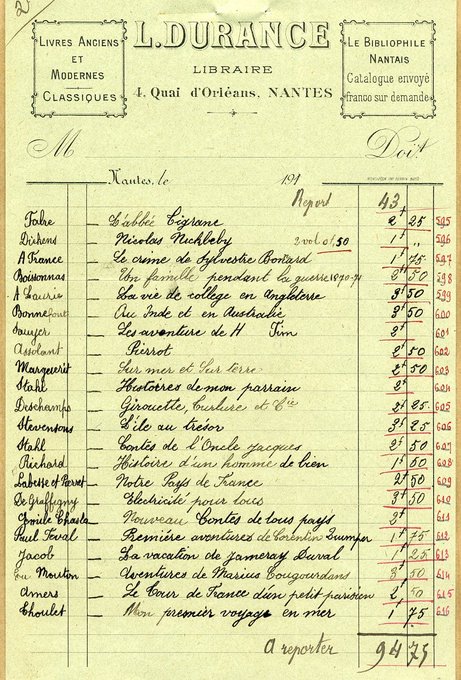 2
LIVRES ANCIENS
ET
MODERNES
CLASSIQUES
L. DURANCE
LIBRAIRE
4, Quai d'Orléans, NANTES
LE BIBLIOPHILE
NANTAIS
Catalogue envoyé
franco sur demande
M
Doit
Nantes, le 191
Report 43
Fabre — L'abbée Tigrane 2f 25 595
Dickens — Nicolas Nuckleby 2 vol à 0f,50 1f „ 596
A France — Le crime de Sylvestre Bonard 1f 75 597
Boissonnas — Une famille pendant la guerre 1870-71 3f 50 598
A Laurie — La vie de collège en Angleterre 3f 50 599
Bonnefont — Aux Inde et en Australie 3f 50 600
— Les aventure de H Finn 3f 601
Assolant — Pierrot 2f 50 602
Margueritt — Sur mer et Sur terre 2f 50 603
Stahl — Histoires de mon parrain 2f 604
Deschamps — Girouette, Turlure et Cie 2f 25 605
Stevensons — L'île au trésor 3f 25 606
Stahl — Contes de l'Oncle Jacques 2f 50 607
Richard — Histoire d'un homme de bien 1f 50 608
— Notre Pays de France 2f 50 609
De Graffigny — Electricité pour tous 3f 50 610
Emile Chasle — Nouveau Contes de tous pays 2f 611
Paul Féval — Première aventures de Corentin Quimper 1f 75 612
Jacob — La vacation de Jameray Duval 1f 25 613
Du Mouton — Aventures de Marius Cougourdans 3f 50 614
Amers — Le Tour de France d'un petit parisien 2f 50 615
Choulet — Mon premier voyage en mer 1f 75 616
A reporter 94 75